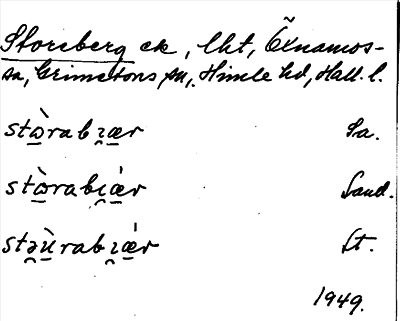 Storeberg ek, lht, Öxnamos-
sa, Grimetons sn, Himle hd, Hall. l.
stɷ̀rabɪær Sa.
stɷ̀rabɪǽr Sand.
stəùrabɪǽr St.
1949.